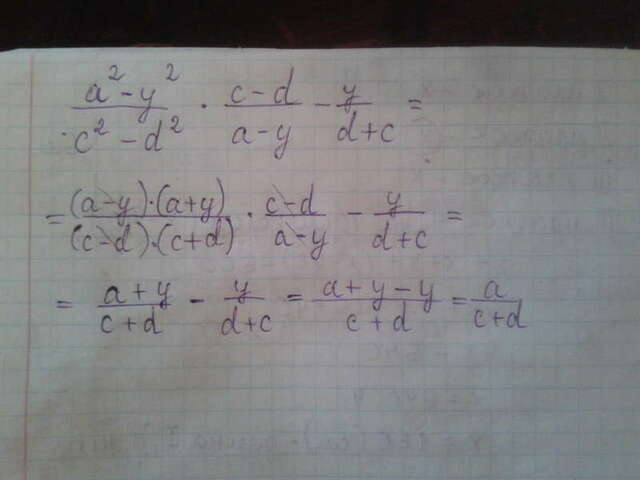 (a² - y²)/(c² - d²) · (c - d)/(a - y) - y/(d + c) =
= ((a - y)·(a + y))/((c - d)·(c + d)) · (c - d)/(a - y) - y/(d + c) =
= (a + y)/(c + d) - y/(d + c) = (a + y - y)/(c + d) = a/(c + d)